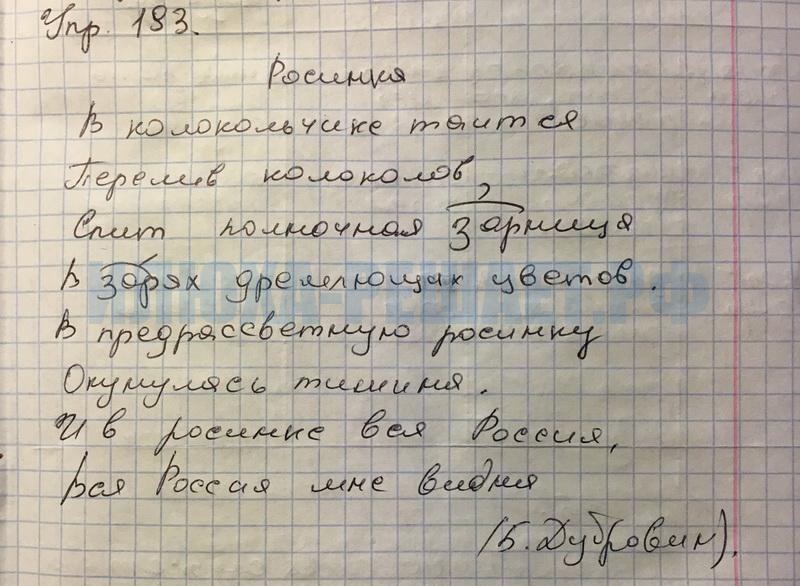 Упр. 183.
Росинка
В колокольчике таится
Перелив колоколов,
Спит полночная зарница
В зорях дремлющих цветов.
В предрассветную росинку
Окунулась тишина.
И в росинке вся Россия,
Вся Россия мне видна
(Б. Дубровин).